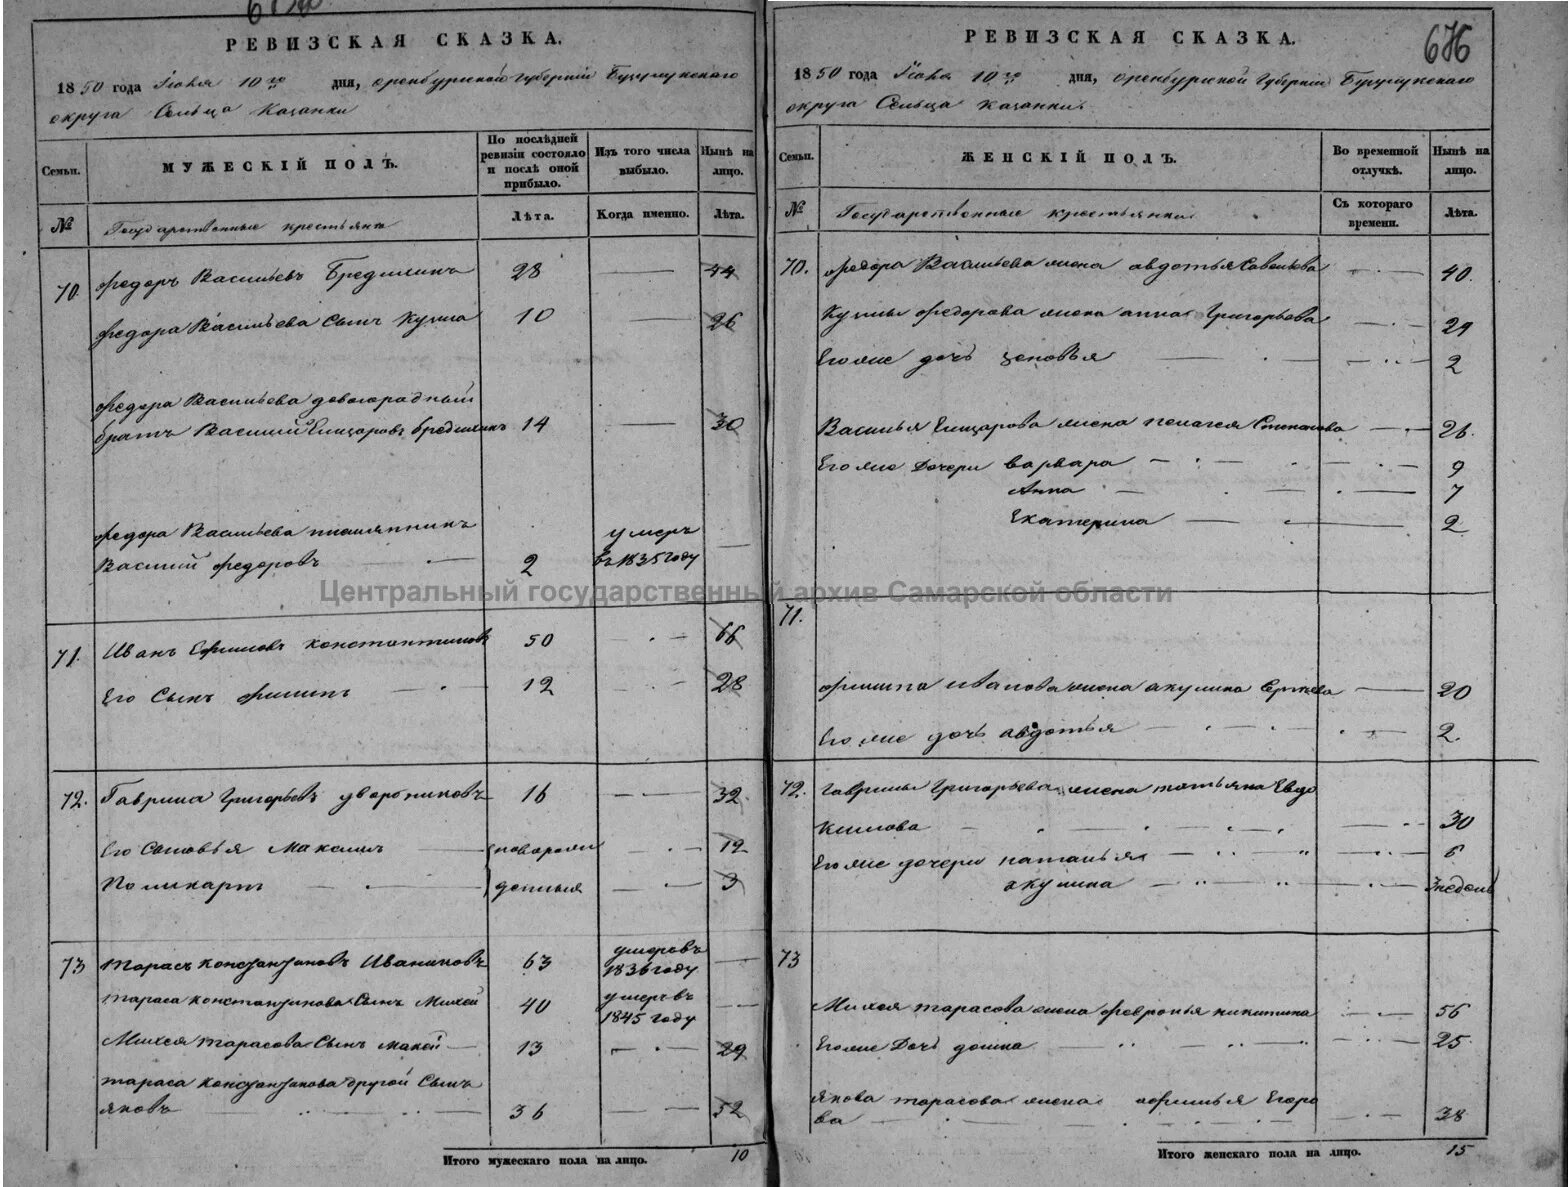 РЕВИЗСКАЯ СКАЗКА.
1850 года Июня 10го дня, Оренбургской Губерніи Бузулукскаго
округа Сельца Казанки
Семьи.
МУЖЕСКІЙ ПОЛЪ.
По послѣдней ревизіи состояло и послѣ оной прибыло.
Изъ того числа выбыло.
Нынѣ на лицо.
№
Государственные крестьяне
Лѣта.
Когда именно.
Лѣта.
70 Федоръ Васильевъ 28 44
Федора Васильева сынъ Кузма 10 26
Федора Васильева двоюродный
братъ Василий 14 30
Федора Васильева племянникъ умеръ
Василий Федоровъ 2 въ 1835 году
71. Иванъ Ефимовъ Константиновъ 50 66
Его сынъ Филипъ 12 28
72. Гаврила Григорьевъ Дворниковъ 16 32
Его сыновья Максимъ 12
Поликарпъ 3
73 Тарасъ Константиновъ 63 умеръ въ 1836 году
Тараса Константинова сынъ Михей 40 умеръ въ 1845 году
Михея Тарасова сынъ Мокей 13 29
Тараса Константинова другой сынъ
Яковъ 36 52
Итого мужескаго пола на лицо. 10
РЕВИЗСКАЯ СКАЗКА.
676
1850 года Июня 10го дня, Оренбургской Губерніи Бузулукскаго
округа Сельца Казанки
Семьи.
ЖЕНСКІЙ ПОЛЪ.
Во временной отлучкѣ.
Нынѣ на лицо.
№
Государственные крестьянки
Съ котораго времени.
Лѣта.
70. Федора Васильева жена Авдотья Савельева 40.
Кузмы Федорова жена Анна Григорьева 29
Его же дочь 2
Василья жена Пелагея Степанова 26.
Его же дочери Варвара 9
Анна 7
Екатерина 2
71.
Филипа Иванова жена Акулина 20
Его же дочь Авдотья 2.
72. Гаврилы Григорьева жена Татьяна Евдо
кимова 30
Его же дочери Наталья 6
Акулина 3 недель
73
Михея Тарасова жена Февронья Никитина 56
Его же дочь Домна 25
Якова Тарасова жена Афимья Егоро
ва 38
Итого женскаго пола на лицо. 15
Центральный государственный архив Самарской области